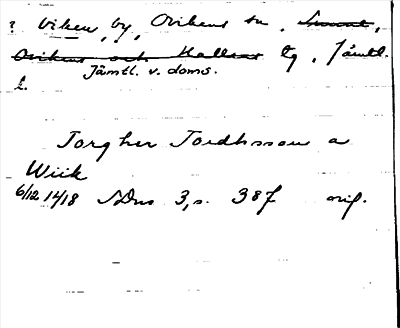 ? Viken, by, Ovikens sn, Sunne,
Ovikens och Hallens tg, Jämtl.
Jämtl. v. doms.
l.
Torgher Tordhsson a
Wiik
6/12 1418 SDns 3, s. 387 orig.